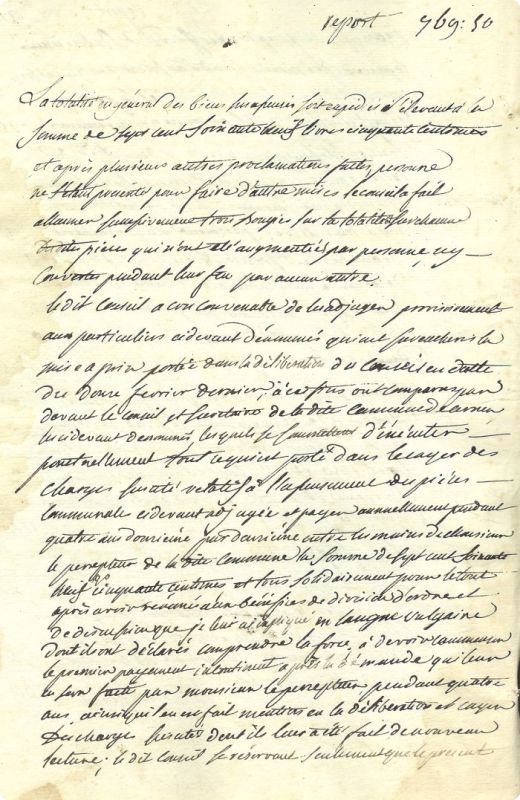 report 769: 50
La totalité en général des biens susapensés sont expediés s'élevant à la
somme de sept cent soixante neuf livres cinquante centimes
et après plusieurs autres proclamations faites, personne
ne s'étant présenté pour faire d'autre mises le conseil a fait
allumer successivement trois bougies sur la totalité sur chacune
desdites pieces qui n'ont été augmentées par personne, ny
couvertes pendant leur feu par aucun autre.
Le dit Conseil a cru convenable de les adjuger provisoirement
aux particuliers cidevant dénommés qui ont surenchéri la
mise a prix portée dans la déliberation du Conseil en datte
du douze fevrier dernier, à ces fins ont comparus par
devant le conseil et secretaire de la dite commune de
les cidevant denommés, lesquels se soumettent d'éxécuter
ponctuellement tout ce qui est porté dans le cayer des
charges susdité relatif à l'affensement des pièces
communales cidevant adjugées et payer annuellement pendant
quatre ans douzieme par douzieme entre les mains de monsieur
le percepteur de la dite commune la somme de sept cent soixante
neuf cinquante centimes et tous solidairement pour le tout
après avoir renoncé aux bénéfices de division d'ordre et
de discussion que je leur ai expliqué en langue vulgaire
dont ils ont déclarés comprendre la force, à devoir commencer
le premier payement incontinent après la demande qui leur
en sera faite par monsieur le percepteur pendant quatre
ans, ainsi qu'il en est fait mention en la déliberation et cayer
des charges susdites dont il leur a été fait de nouveau
lecture; le dit Conseil se réservant seulement que le présent